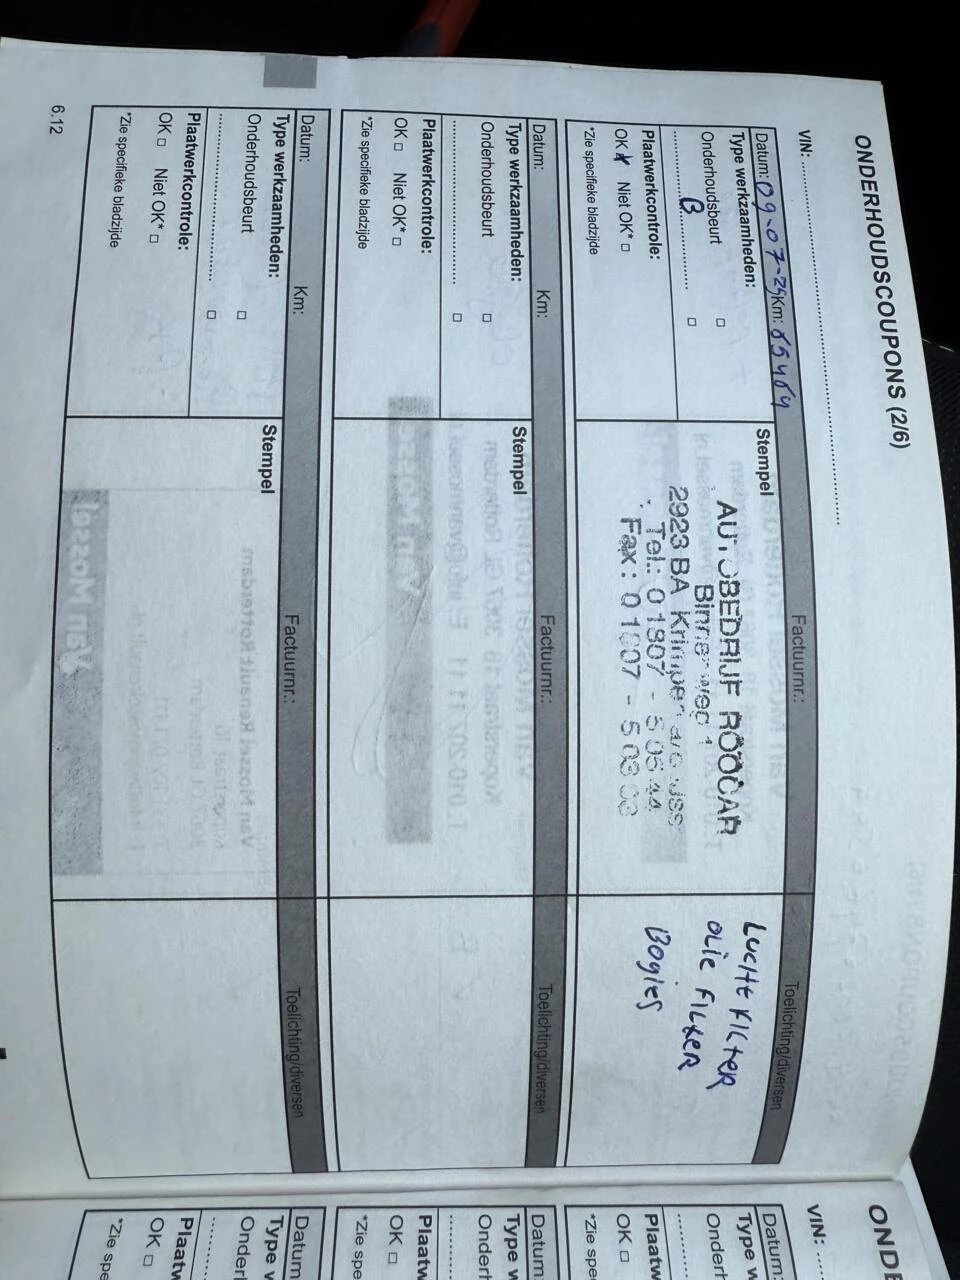 ONDERHOUDSCOUPONS (2/6)
VIN:
Datum: 09-07-25 Km: 85464 Factuurnr.: Toelichting/diversen
Type werkzaamheden:
Onderhoudsbeurt □
B □
Plaatwerkcontrole:
OK Niet OK* □
*Zie specifieke bladzijde
Stempel
AUTOBEDRIJF ROOCAR
Binnenweg 1
2923 BA Krimpen a/d IJssel
Tel.: 01807 -
Fax: 01807 -
LUCHt FILtER
OLiE FILtER
BOGIES
Datum: Km: Factuurnr.: Toelichting/diversen
Type werkzaamheden:
Onderhoudsbeurt □
□
Plaatwerkcontrole:
OK □ Niet OK* □
*Zie specifieke bladzijde
Stempel
Datum: Km: Factuurnr.: Toelichting/diversen
Type werkzaamheden:
Onderhoudsbeurt □
□
Plaatwerkcontrole:
OK □ Niet OK* □
*Zie specifieke bladzijde
Stempel
6.12
ONDE
VIN:
Datum:
Type w
Onderh
Plaatw
OK □
*Zie spe
Datum
Type w
Onderh
Plaatw
OK □
*Zie spe
Datum
Type w
Onder
Plaatw
OK □
*Zie spe